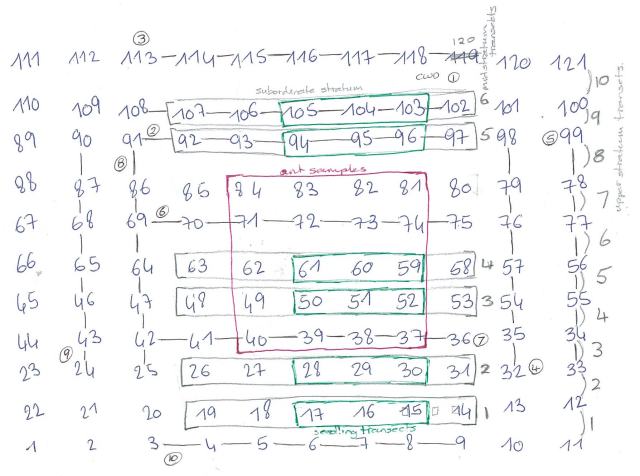 ③ 120 midstratum transects
111 112 113 114 115 116 117 118 119 120 121
CWD ① 10
suborderate stratum
110 109 108 107 106 105 104 103 102 6 101 100 9
② ⑤
89 90 91 92 93 94 95 96 97 5 98 99
⑧ 8
ant samples
88 87 86 85 84 83 82 81 80 79 78
7 upper stratum transets.
67 68 69 ⑥ 70 71 72 73 74 75 76 77
6
66 65 64 63 62 61 60 59 58 4 57 56
5
45 46 47 48 49 50 51 52 53 3 54 55
4
44 43 42 41 40 39 38 37 36 ⑦ 35 34
⑨ 3
23 24 25 26 27 28 29 30 31 2 32 ④ 33
2
22 21 20 19 18 17 16 15 14 1 13 12
seedling transects 1
1 2 3 4 5 6 7 8 9 10 11
⑩